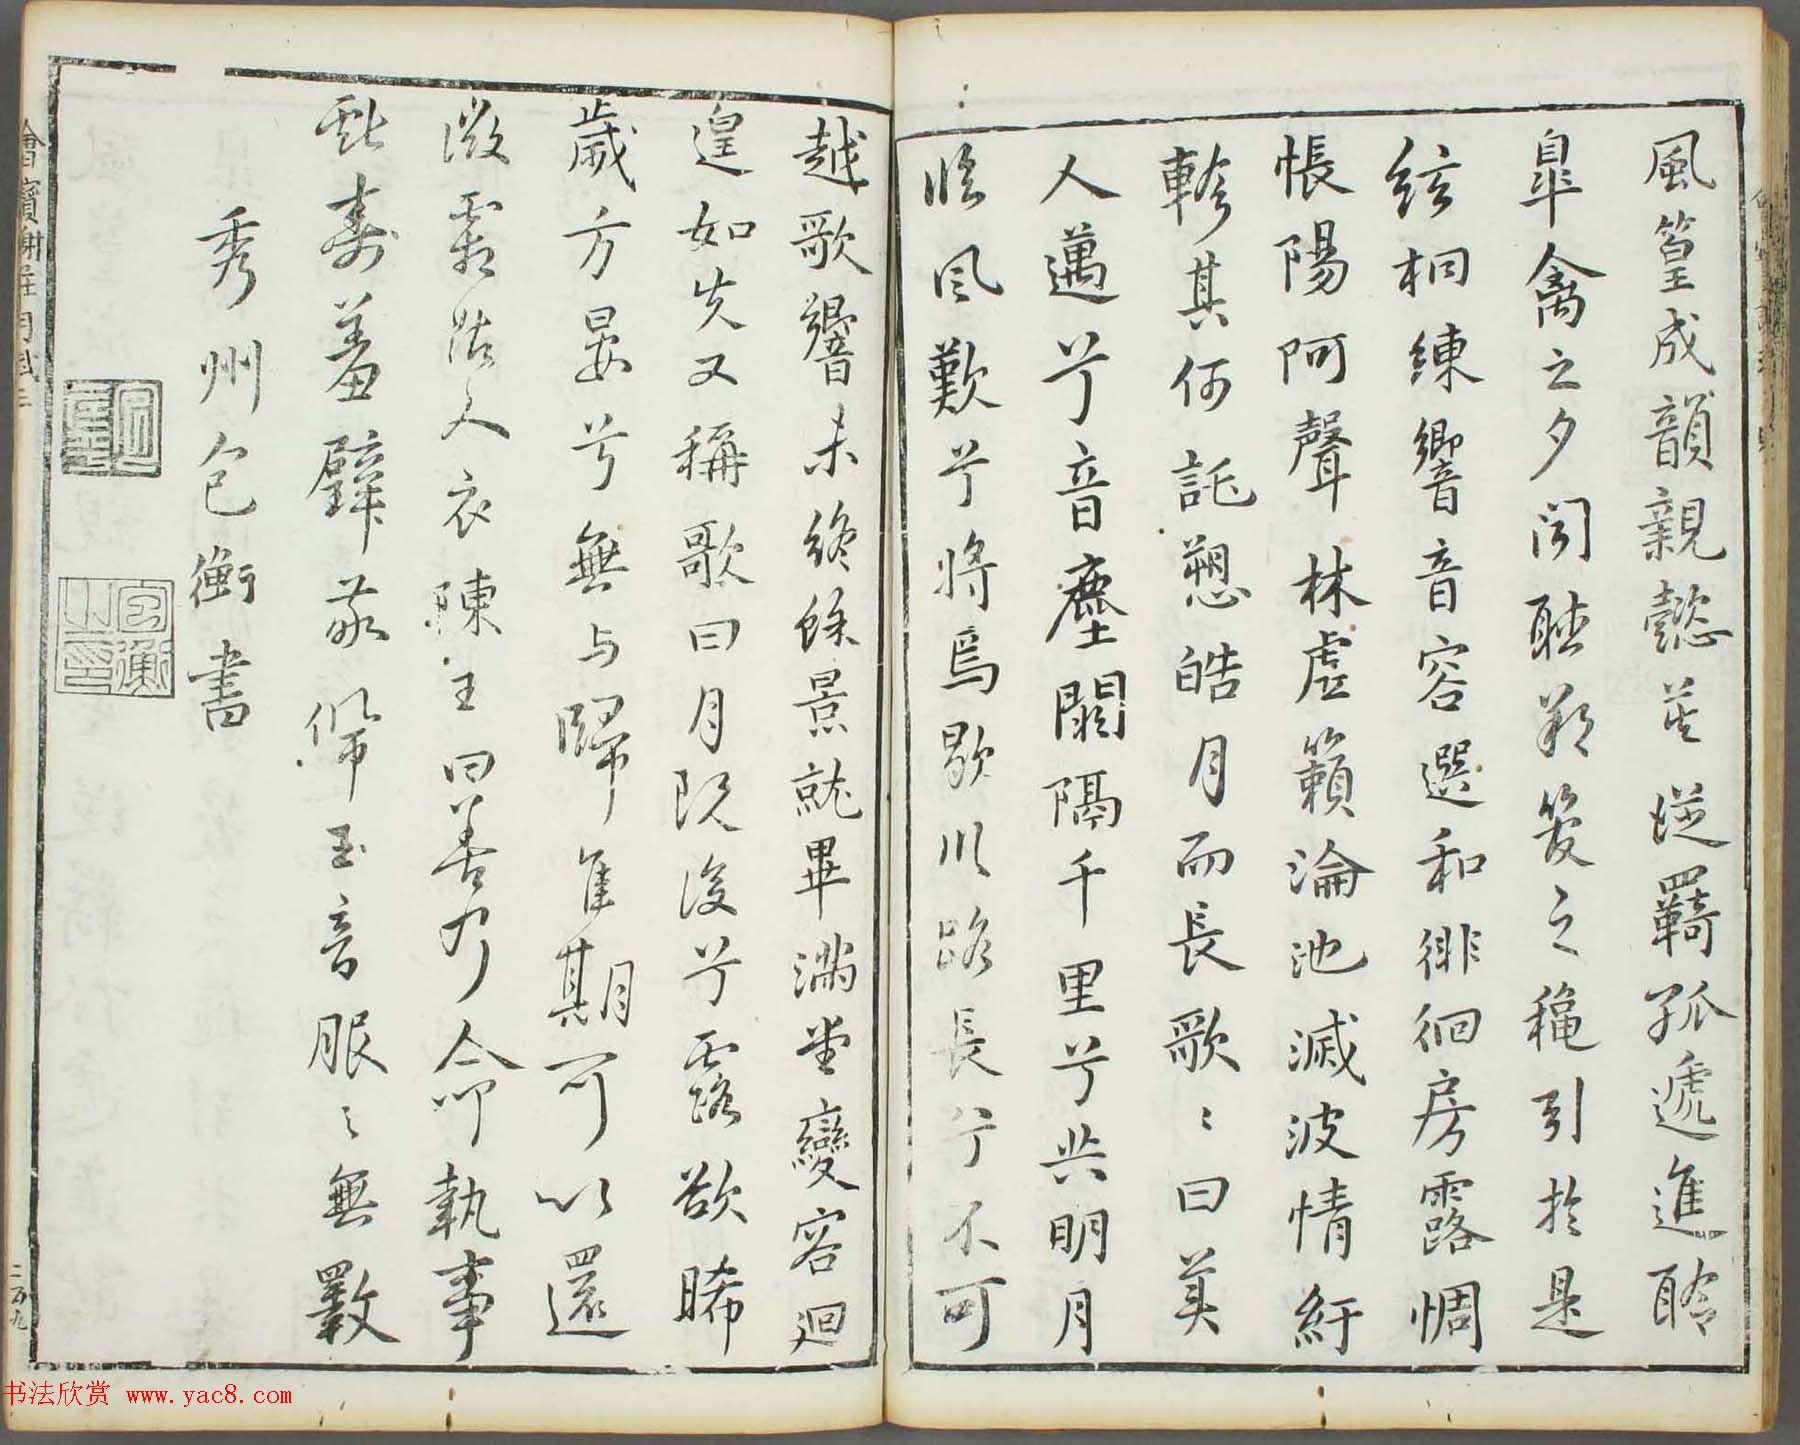 風篁成韻親懿莫從羈孤遞進聆
皐禽之夕聞聽朔管之穐引於是
絃桐練響音容選和徘徊房露惆
悵陽阿聲林虛籟淪池滅波情紆
軫其何託愬皓月而長歌〻曰美
人邁兮音塵闕隔千里兮共明月
臨風歎兮將焉歇川路長兮不可
越歌響未終餘景就畢滿堂變容廻
遑如失又稱歌曰月既没兮露欲晞
歲方晏兮無与歸佳期可以還
微霜沾人衣陳王曰善乃命執事
獻壽羞璧敬佩玉音服之無斁
秀州包衡書
謝莊月賦三
二百九
书法欣赏 www.yac8.com